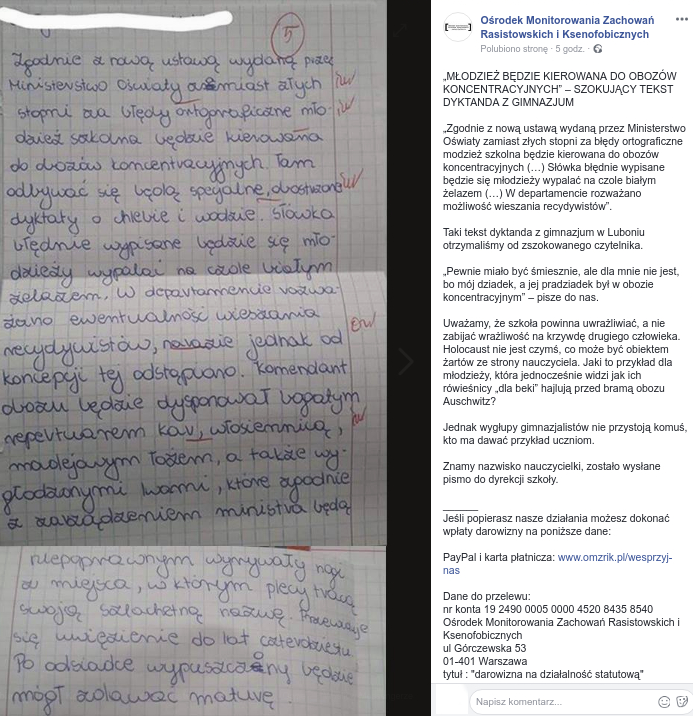 5
Zgodnie z nową ustawą wydaną przez
Ministerstwo Oświaty zamiast złych
stopni za błędy ortograficzne mło-
dzież szkolna będzie kierowana
do obozów koncentracyjnych. Tam
odbywać się będą specjalne, obostrzone
dyktaty o chlebie i wodzie. Słówka
błędnie wypisane będzie się mło-
dzieży wypalać na czole białym
żelazem. W departamencie rozwa-
żano ewentualność wieszania
recydywistów, narazie jednak od
koncepcji tej odstąpiono. Komendant
obozu będzie dysponował bogatym
repertuarem kar, włosiennicą,
madejowym łożem, a także wy-
głodzonymi lwami, które zgodnie
z zarządzeniem ministra będą
niepoprawnym wyrywały nogi
z miejsca, w którym plecy tracą
swoją szlachetną nazwę. Przewiduje
się uwięzienie do lat czterdziestu.
Po odsiadce wypuszczony będzie
mógł zdawać maturę.
Ośrodek Monitorowania Zachowań
Rasistowskich i Ksenofobicznych
Polubiono stronę · 5 godz. ·
„MŁODZIEŻ BĘDZIE KIEROWANA DO OBOZÓW
KONCENTRACYJNYCH” – SZOKUJĄCY TEKST
DYKTANDA Z GIMNAZJUM
„Zgodnie z nową ustawą wydaną przez Ministerstwo
Oświaty zamiast złych stopni za błędy ortograficzne
modzież szkolna będzie kierowana do obozów
koncentracyjnych (…) Słówka błędnie wypisane
będzie się młodzieży wypalać na czole białym
żelazem (…) W departamencie rozważano
możliwość wieszania recydywistów”.
Taki tekst dyktanda z gimnazjum w Luboniu
otrzymaliśmy od zszokowanego czytelnika.
„Pewnie miało być śmiesznie, ale dla mnie nie jest,
bo mój dziadek, a jej pradziadek był w obozie
koncentracyjnym” – pisze do nas.
Uważamy, że szkoła powinna uwrażliwiać, a nie
zabijać wrażliwość na krzywdę drugiego człowieka.
Holocaust nie jest czymś, co może być obiektem
żartów ze strony nauczyciela. Jaki to przykład dla
młodzieży, która jednocześnie widzi jak ich
rówieśnicy „dla beki” hajlują przed bramą obozu
Auschwitz?
Jednak wygłupy gimnazjalistów nie przystoją komuś,
kto ma dawać przykład uczniom.
Znamy nazwisko nauczycielki, zostało wysłane
pismo do dyrekcji szkoły.
______
Jeśli popierasz nasze działania możesz dokonać
wpłaty darowizny na poniższe dane:
PayPal i karta płatnicza: www.omzrik.pl/wesprzyj-
nas
Dane do przelewu:
nr konta 19 2490 0005 0000 4520 8435 8540
Ośrodek Monitorowania Zachowań Rasistowskich i
Ksenofobicznych
ul Górczewska 53
01-401 Warszawa
tytuł : "darowizna na działalność statutową"
Napisz komentarz...